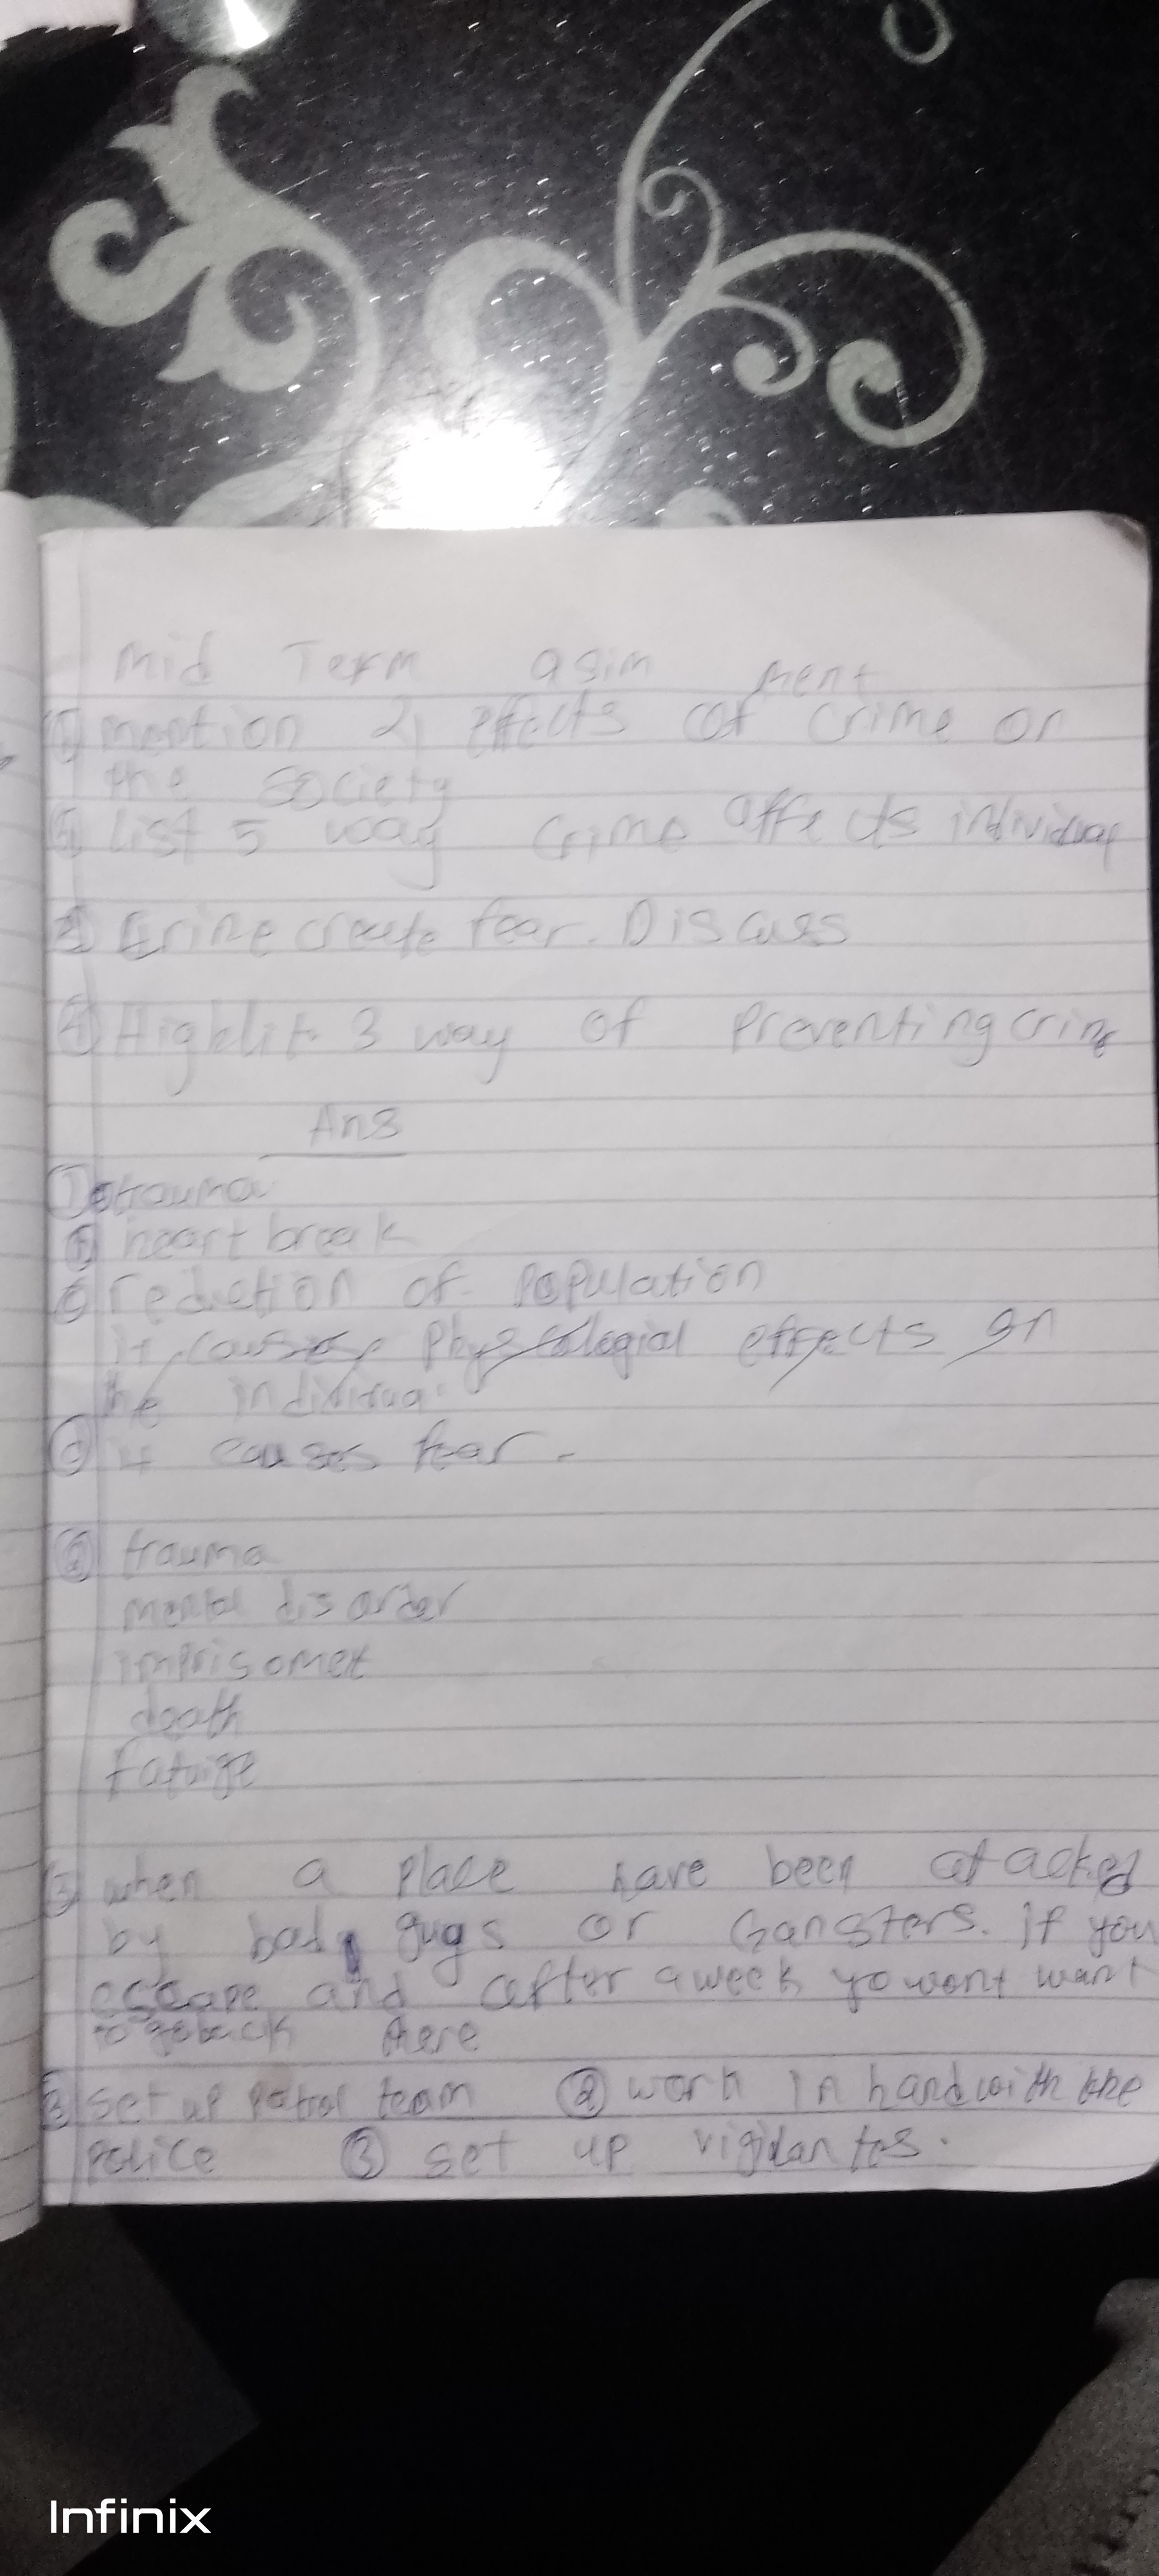 Mid Term asim ment
① mention 2, effects of crime on
the society
list 5 way crime affects individual
crime create fear. Discuss
④ Highlit 3 way of Preventing crime
Ans
① trauma
heart break
reduction of Population
it causes effects on
the
it causes fear.
② trauma
mental disorder
imprisomet
death
③ when a place have been atacked
by bad guys or Gangsters. if you
escape and after a week yo wont want
to go back there
set up patrol team ② work in hand with the
police ③ set up vigilantes.
Infinix